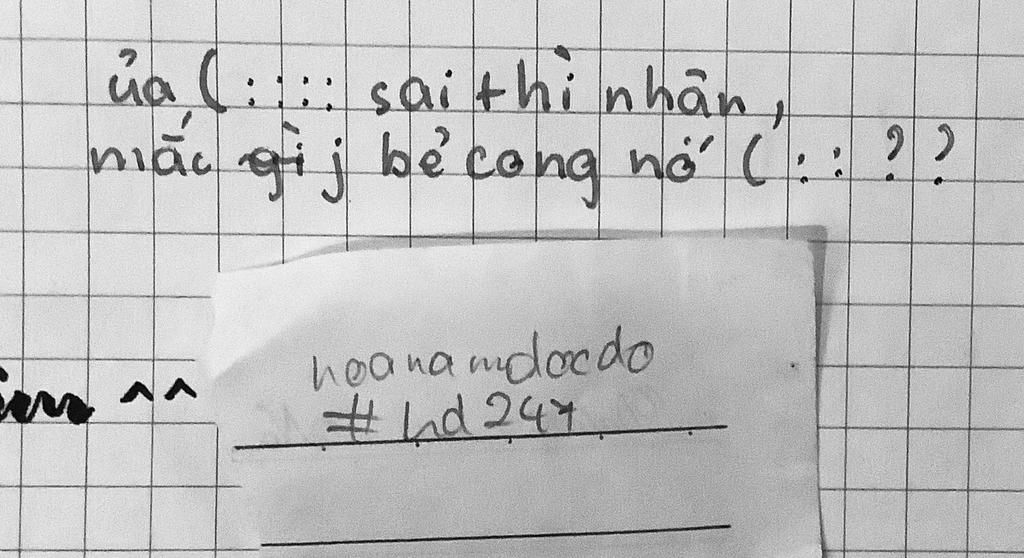 ủa (:::: sai thì nhân,
mắc gìj bẻ cong nó (:::??
^^
hoanamdocdo
#hd247